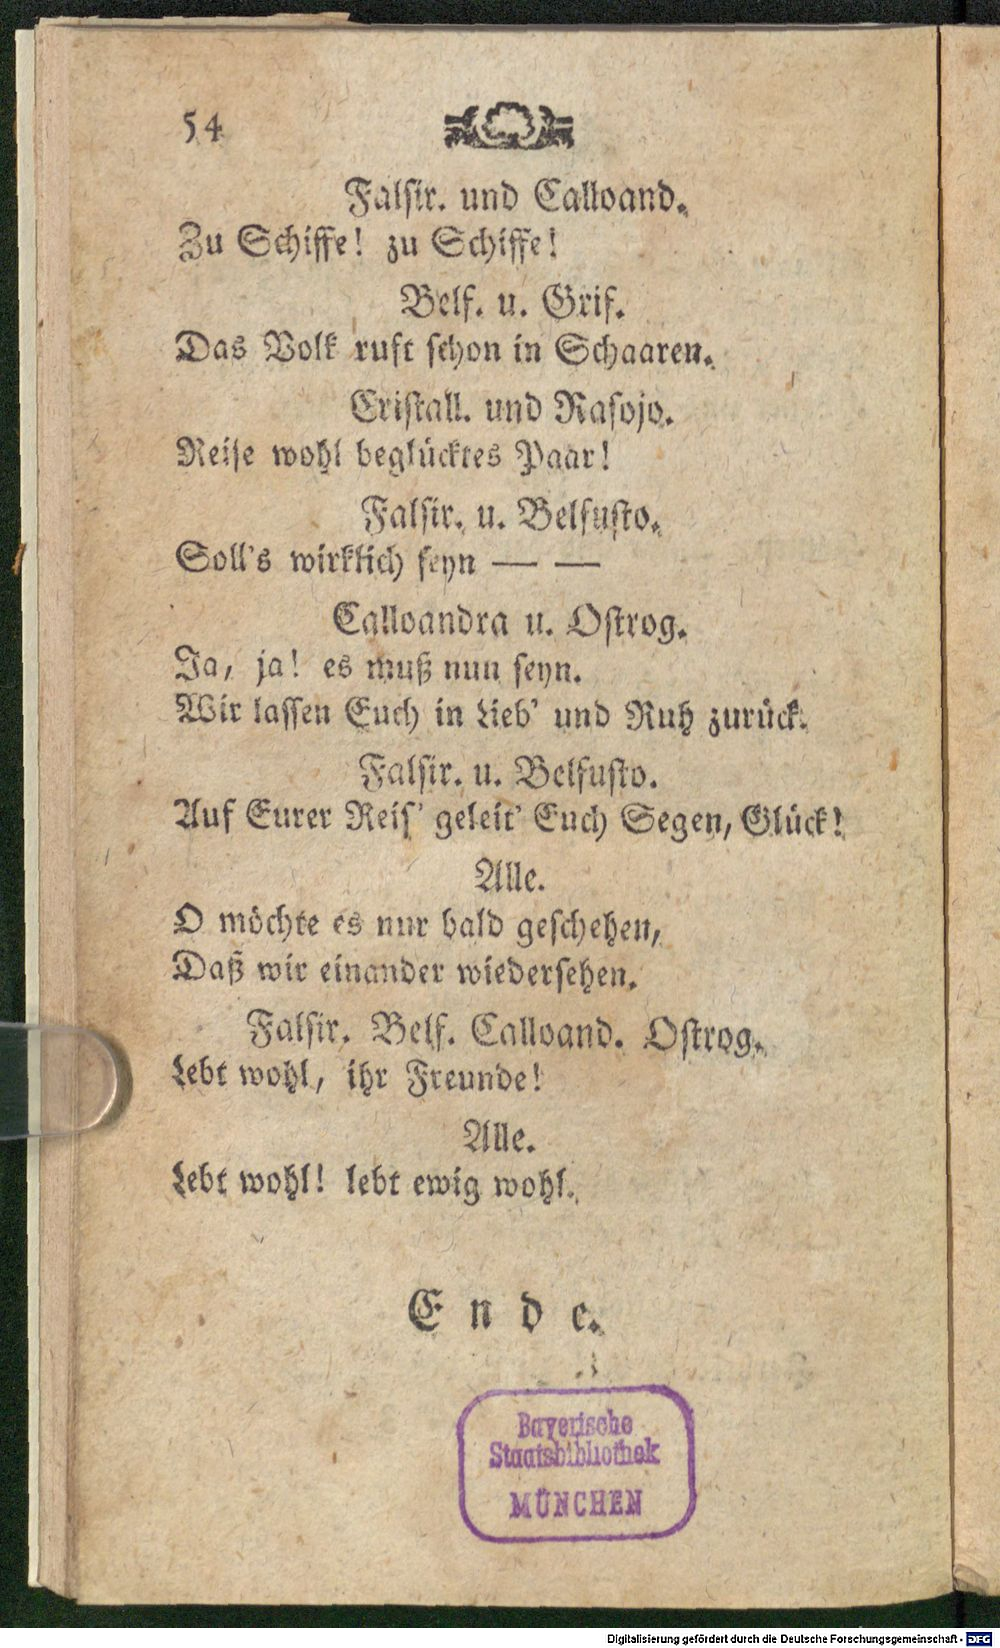 54
Falsir. und Calloand.
Zu Schiffe! zu Schiffe!
Belf. u. Grif.
Das Volk ruft schon in Schaaren.
Cristall. und Rasojo.
Reise wohl beglücktes Paar!
Falsir. u. Belfusto.
Soll's wirklich seyn — —
Calloandra u. Ostrog.
Ja, ja! es muß nun seyn.
Wir lassen Euch in Lieb' und Ruh zurück.
Falsir. u. Belfusto.
Auf Eurer Reis' geleit' Euch Segen, Glück!
Alle.
O möchte es nur bald geschehen,
Daß wir einander wiedersehen.
Falsir. Belf. Calloand. Ostrog.
Lebt wohl, ihr Freunde!
Alle.
Lebt wohl! lebt ewig wohl.
Ende.
Bayerische
Staatsbibliothek
MÜNCHEN
Digitalisierung gefördert durch die Deutsche Forschungsgemeinschaft - DFG